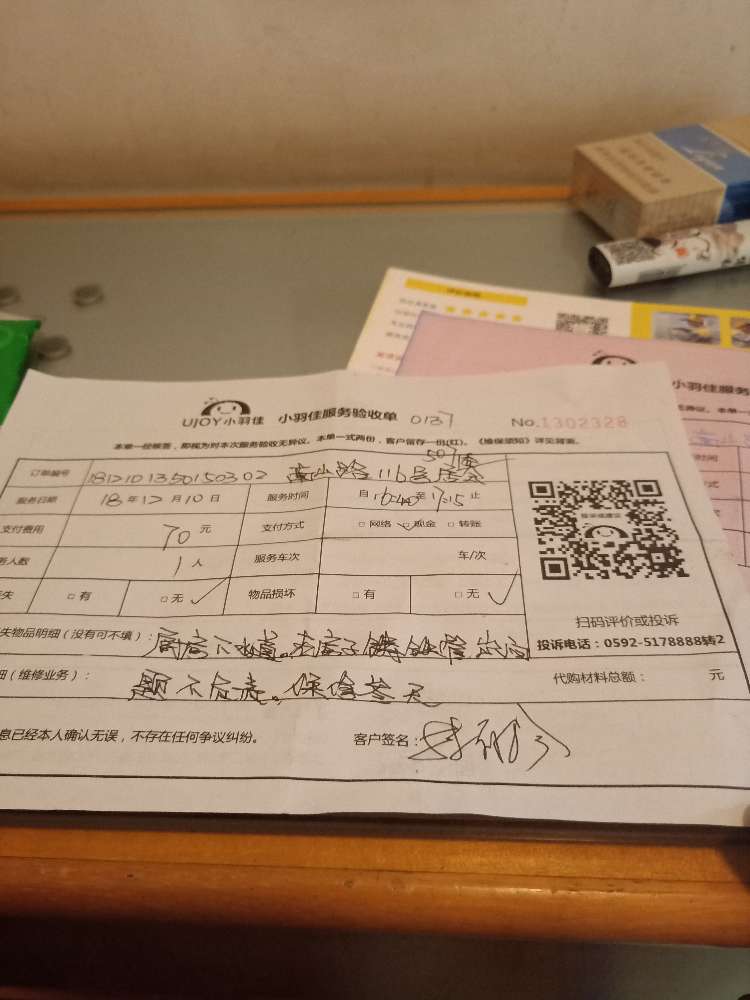 UJOY小羽佳 小羽佳服务验收单 0137 No.1302328
本单一经报签，即视为对本次服务验收无异议。本单一式两份，客户留存一份(红)。《维保须知》详见背面。
507室
订单编号 1812101350150302 山路116号
服务日期 18年12月10日 服务时间 自16:40至17:15止
支付费用 70元 支付方式 □网络 □现金 □转账
务人数 1人 服务车次 车/次
失 □有 □无 ✓ 物品损坏 □有 □无 ✓
扫码评价或投诉
投诉电话：0592-5178888转2
失物品明细（没有可不填）：厨房下水道。
细（维修业务）：题不负责。保修叁天 代购材料总额： 元
息已经本人确认无误，不存在任何争议纠纷。 客户签名：
小羽佳服